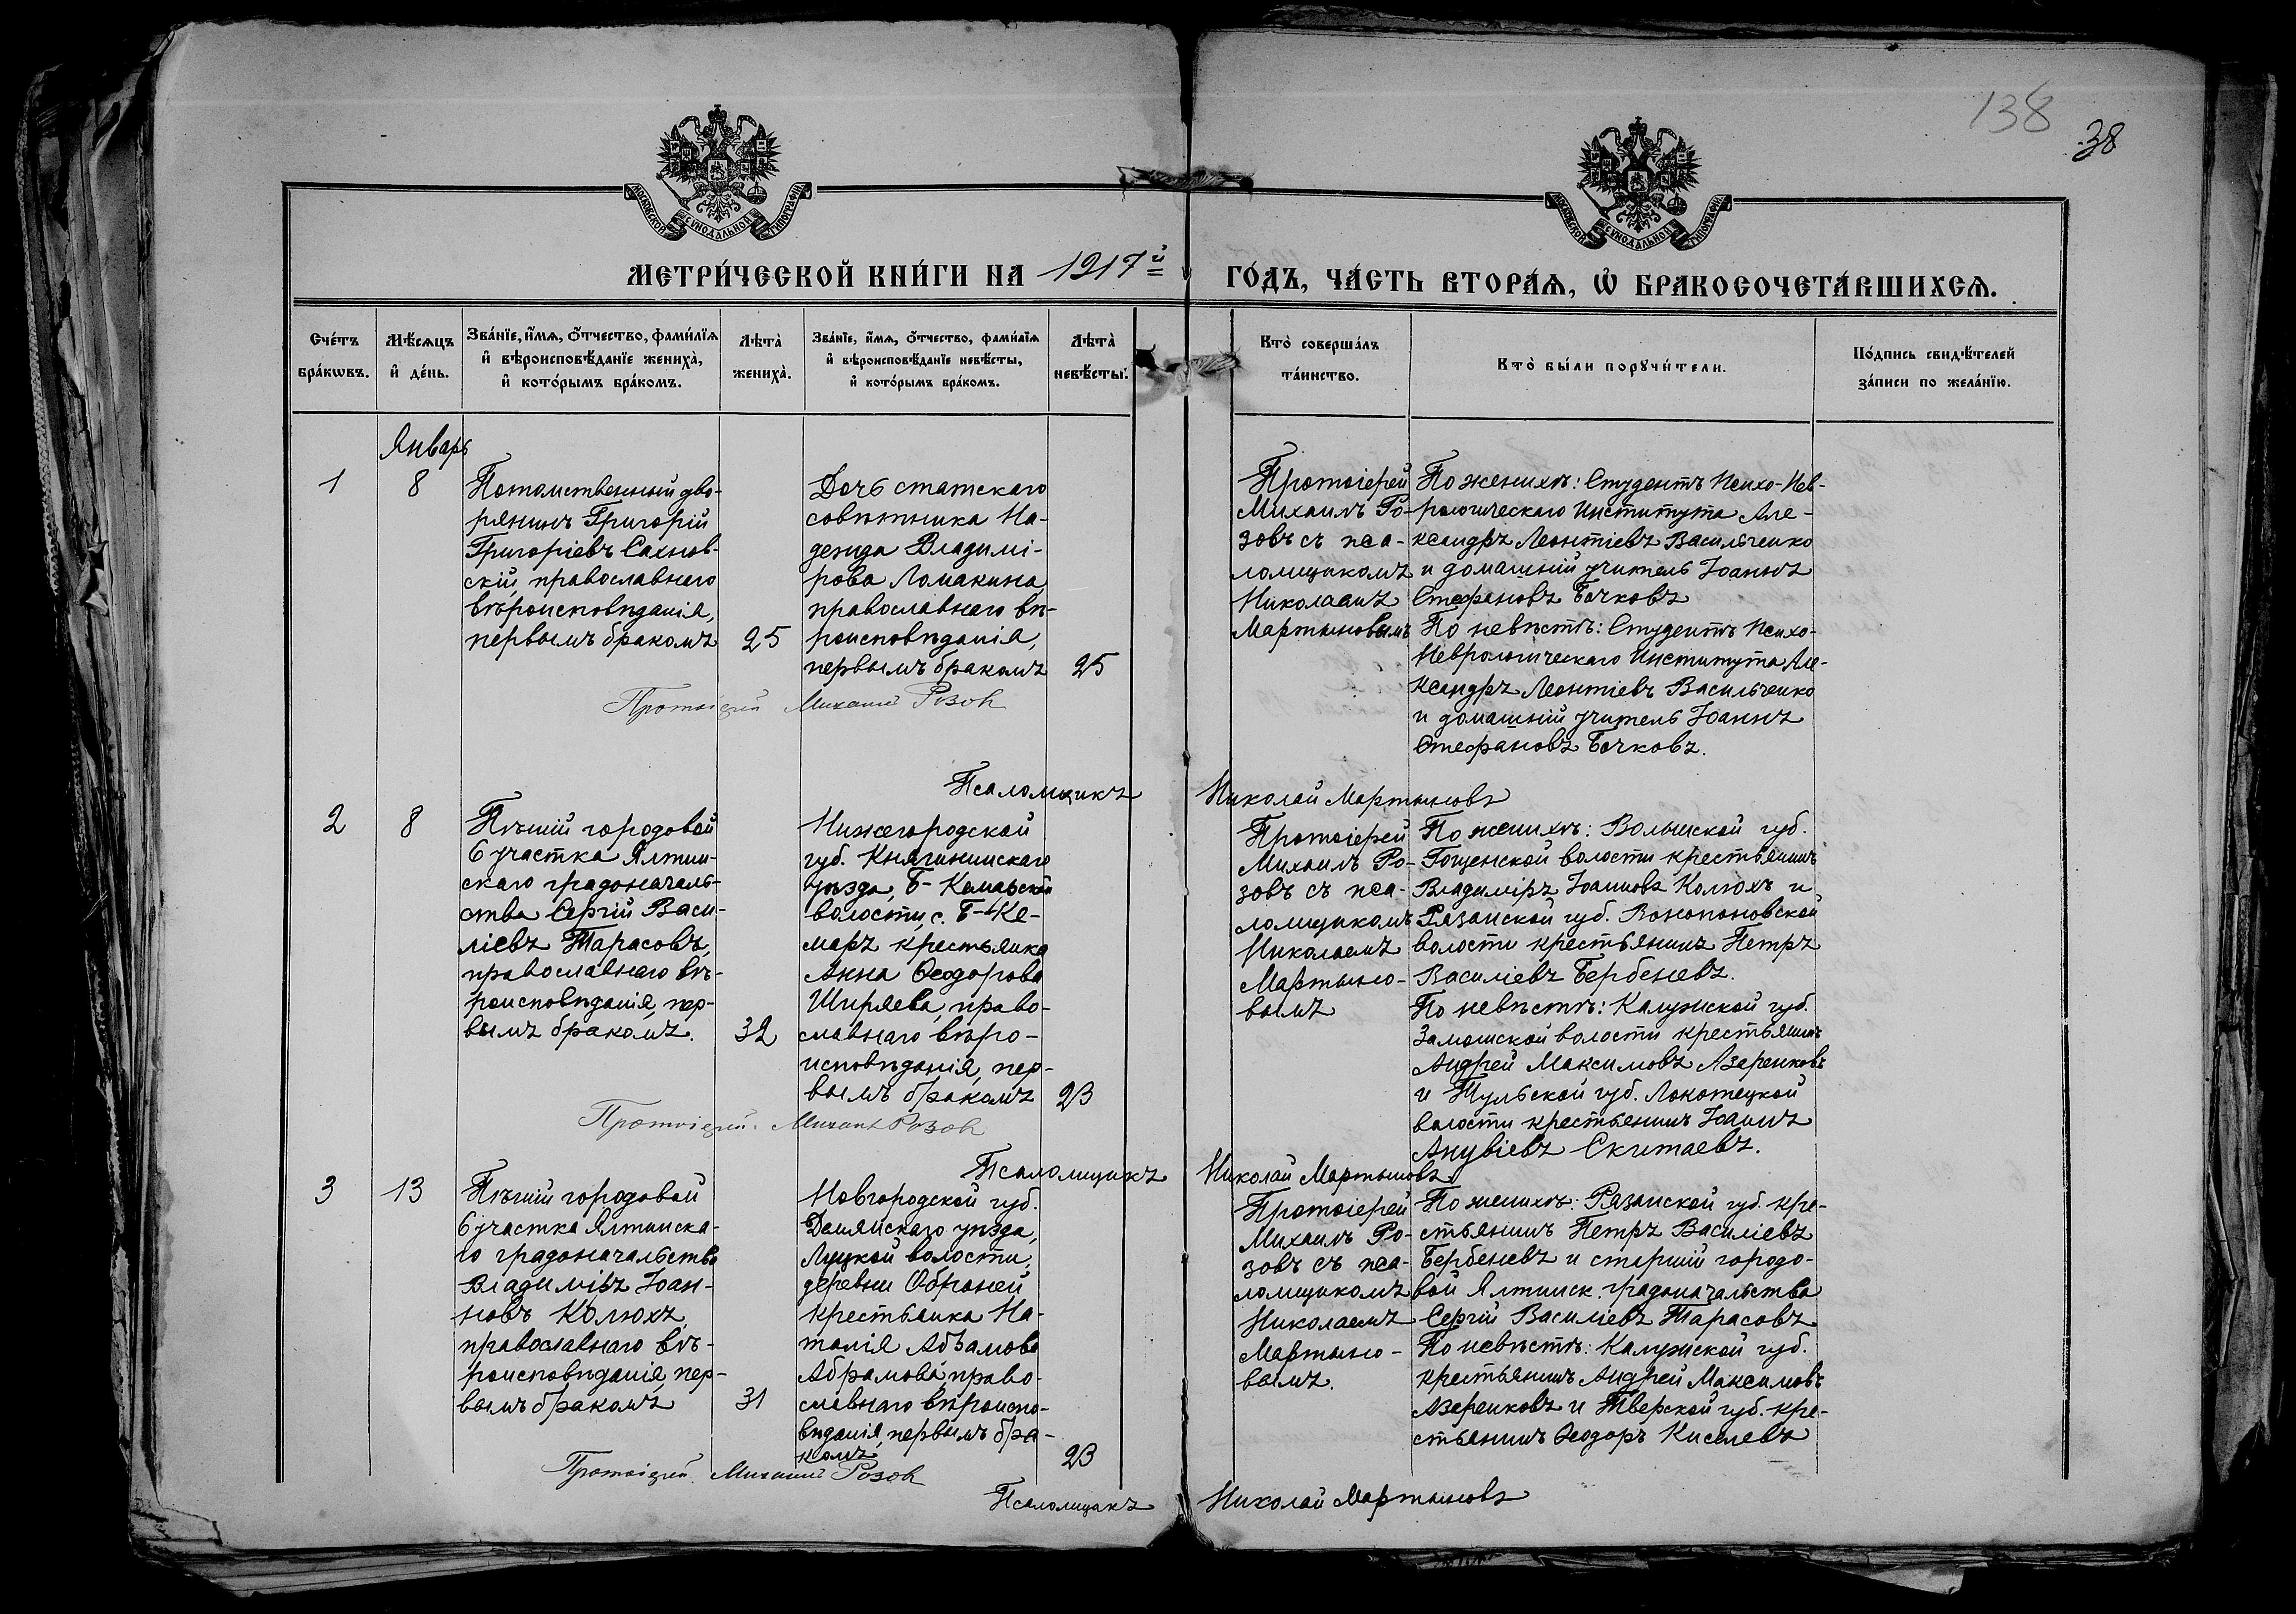 138
38
МОСКОВСКОЙ СѴНОДАЛЬНОЙ ТИПОГРАФІИ
МОСКОВСКОЙ СѴНОДАЛЬНОЙ ТИПОГРАФІИ
МЕТРИ́ЧЕСКОЙ КНИ́ГИ НА 1917й
ГО́ДЪ, ЧА́СТЬ ВТОРА́Ѧ, Ѽ БРАКОСОЧЕТА́ВШИХСѦ.
Сче́тъ
бра́кѡвъ.
Мѣ́сѧцъ
и҆ де́нь.
Зва́нїе, и҆́мѧ, ѻ҆́тчество, фами́лїѧ
и҆ вѣроисповѣ́данїе жениха̀,
и҆ кото́рымъ бра́комъ.
Лѣта̀
жениха̀.
Зва́нїе, и҆́мѧ, ѻ҆́тчество, фами́лїѧ
и҆ вѣроисповѣ́данїе невѣ́сты,
и҆ кото́рымъ бра́комъ.
Лѣта̀
невѣ́сты.
Кто̀ соверша́лъ
та́инство.
Кто̀ бы́ли порꙋчи́тели.
По́дпись свидѣ́телей
за́писи по жела́нїю.
Январь
1
8
Потомственный дво-
рянинъ Григорій
Григоріевъ Сахнов-
скій, православнаго
вѣроисповѣданія,
первымъ бракомъ
25
Дочь статскаго
совѣтника На-
дежда Владимі-
рова Ломакина,
православнаго вѣ-
роисповѣданія,
первымъ бракомъ
25
Протоіерей
Михаилъ Ро-
зовъ съ пса-
ломщикомъ
Николаемъ
Мартыновымъ
По женихѣ: Студентъ Психо-Нев-
рологическаго Института Але-
ксандръ Леонтіевъ Васильченко
и домашній учитель Іоаннъ
Стефановъ Бочковъ
По невѣстѣ: Студентъ Психо-
Неврологическаго Института Але-
ксандръ Леонтіевъ Васильченко
и домашній учитель Іоаннъ
Стефановъ Бочковъ.
Протоіерей Михаилъ Розовъ
Псаломщикъ Николай Мартыновъ
2
8
Пѣшій городовой
6 участка Ялтин-
скаго градоначаль-
ства Сергій Васи-
ліевъ Тарасовъ,
православнаго вѣ-
роисповѣданія, пер-
вымъ бракомъ.
32
Нижегородской
губ. Княгининскаго
уѣзда, Б- Кемарской
волости, с. Б-Ке-
маръ крестьянка
Анна Ѳеодорова
Ширяева, право-
славнаго вѣро-
исповѣданія, пер-
вымъ бракомъ
23
Протоіерей
Михаилъ Ро-
зовъ съ пса-
ломщикомъ
Николаемъ
Мартыно-
вымъ
По женихѣ: Волынской губ.
Гощенской волости крестьянинъ
Владиміръ Іоанновъ Колюхъ и
Рязанской губ. Вонопоновской
волости крестьянинъ Петръ
Василіевъ Бербеневъ.
По невѣстѣ: Калужской губ.
Замошской волости крестьянинъ
Андрей Максимовъ Азеренковъ
и Тульской губ. Локотецкой
волости крестьянинъ Іоаннъ
Скитаевъ.
Протоіерей Михаилъ Розовъ
Псаломщикъ Николай Мартыновъ
3
13
Пѣшій городовой
6 участка Ялтинска-
го градоначальства
Владиміръ Іоан-
новъ Колюхъ,
православнаго вѣ-
роисповѣданія, пер-
вымъ бракомъ
31
Новгородской губ.
Демянскаго уѣзда,
Луцкой волости,
деревни
крестьянка На-
талія
Абрамова, право-
славнаго вѣроиспо-
вѣданія, первымъ бра-
комъ
23
Протоіерей
Михаилъ Ро-
зовъ съ пса-
ломщикомъ
Николаемъ
Мартыно-
вымъ.
По женихѣ: Рязанской губ. кре-
стьянинъ Петръ Василіевъ
Бербеневъ и старшій городо-
вой Ялтинск. градоначальства
Сергій Василіевъ Тарасовъ
По невѣстѣ: Калужской губ.
крестьянинъ Андрей Максимовъ
Азеренковъ и Тверской губ. кре-
стьянинъ Ѳеодоръ Киселевъ
Протоіерей Михаилъ Розовъ
Псаломщикъ Николай Мартыновъ